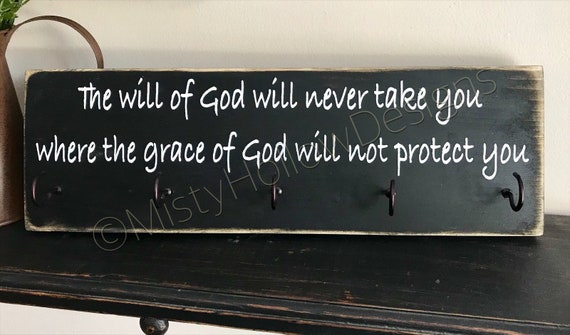 The will of God will never take you
where the grace of God will not protect you
©MistyHollowDesigns